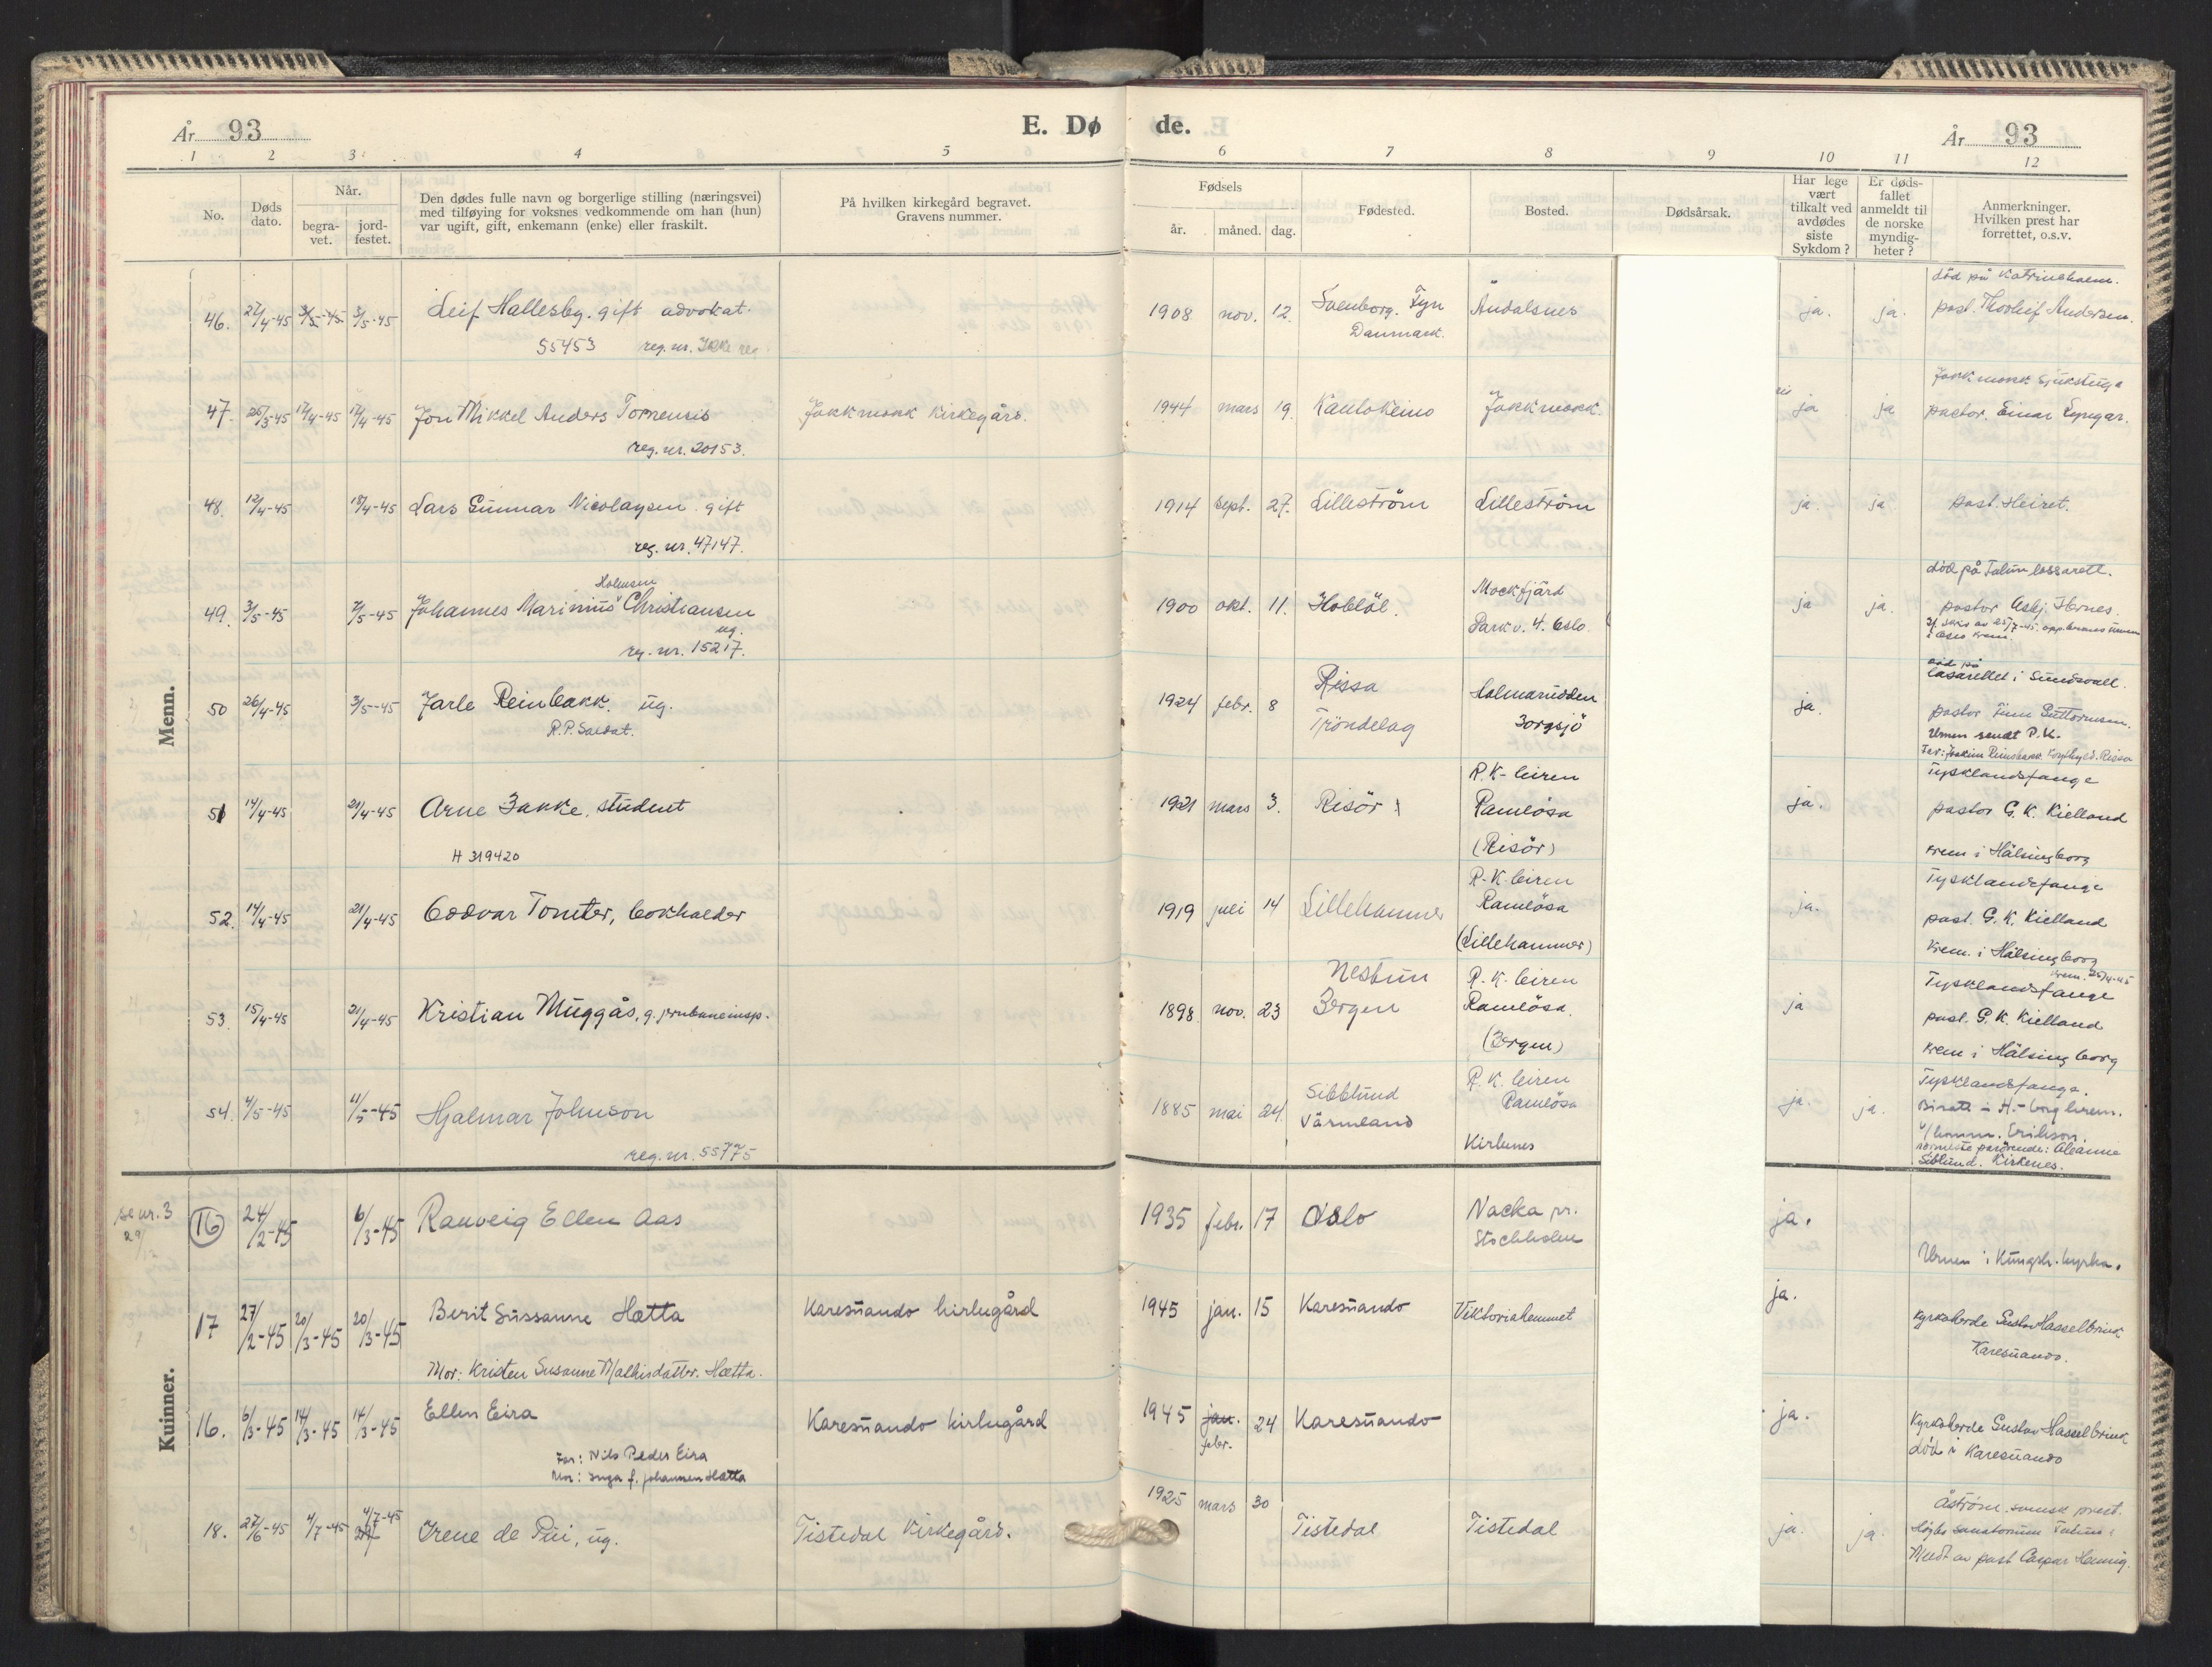 År 93
E. Dø
de.
År 93
1 2 3 4 5 6 7 8 9 10 11 12
No.
Døds dato.
Når.
begravet.
jordfestet.
Den dødes fulle navn og borgerlige stilling (næringsvei)
med tilføying for voksnes vedkommende om han (hun)
var ugift, gift, enkemann (enke) eller fraskilt.
På hvilken kirkegård begravet.
Gravens nummer.
Fødsels
år. måned. dag.
Fødested.
Bosted.
Dødsårsak.
Har lege
vært
tilkalt ved
avdødes
siste
Sykdom?
Er døds-
fallet
anmeldt til
de norske
myndig-
heter?
Anmerkninger.
Hvilken prest har
forrettet, o.s.v.
Menn.
død på Katrineholm.
46. 27/4-45 3/5-45 3/5-45 Leif Hallesby. gift advokat. 1908 nov. 12. Svenborg. Fyn Åndalsnes ja. ja. past. Thorleif Andersen.
55453 reg. nr. Ikke reg Danmark.
Jokkmokk sjukstuga
47. 26/3-45 17/4-45 17/4-45 Jon Mikkel Anders Tornensis Jokkmokk Kirkegård. 1944 mars 19. Kautokeino Jokkmokk. ja ja pastor. Einar Lyngar.
reg. nr. 20153.
48. 12/4-45 18/4-45 Lars Gunnar Nicolaysen gift 1914 sept. 27. Lilleström Lilleström ja. ja past. Heiret.
reg. nr. 47147.
død på Falun lassarett.
Holmsen Mockfjärd
49. 3/5-45 7/5-45 Johannes Marinius Christiansen 1900 okt. 11. Hobøl. Parkv. 4. Oslo. ja ja. pastor Asbj. Hernes.
ug.
reg. nr. 15217.
død på
lasarettet i Sundsvall.
50 26/4-45 3/5-45 Jarle Reinbakk. ug. 1924 febr. 8 Rissa Holmsrudden ja. pastor Finn
R.P. Soldat. Tröndelag Borgsjö Urnen sendt P.K.
R.K-leiren Tysklandsfange
51 14/4-45 21/4-45 Arne Bakke, student 1921 mars 3. Risör Ramlösa ja. pastor G. K. Kielland
H 319420 (Risör) krem i Hälsingborg
R.K. leiren Tysklandsfange
52. 14/4-45 21/4-45 Oddvar Tomter, bokholder 1919 juli 14 Lillehammer Ramlösa ja. past. G. K. Kielland
(Lillehammer) krem. i Hälsingborg
krem. 25/4-45
Nestun R.K. leiren Tysklandsfange
53. 15/4-45 21/4-45 Kristian Muggås, g. jernbaneinsp. 1898. nov. 23 Bergen Ramlösa. ja past. G. K. Kielland
(Bergen) krem i Hälsingborg
Sibblund R.K. leiren Tysklandsfange.
54. 4/5-45 11/5-45 Hjalmar Johnson 1885 mai 24 Värmland Ramlösa ja. ja.
reg. nr. 55775 Kirkenes
Siblund. Kirkenes.
Kuinner.
se nr. 3
16 24/2-45 6/3-45 Ranveig Ellen Aas 1935 febr. 17 Oslo Nacka pr. ja.
Stockholm
Urnen i Kungsh. kyrka.
17 27/2-45 20/3-45 20/3-45 Berit Sussanne Hætta Karesuando kirkegård 1945 jan. 15 Karesuando Viktoriahemmet ja. Kyrkoherde Gustav Hasselbrink
Karesuando.
Mor: Kristen Susanne Mathisdatter. Hætta.
16. 6/3-45 14/3-45 14/3-45 Ellen Eira Karesuando kirkegård 1945 jan. 24 Karesuando ja. Kyrkoherde Gustav Hasselbrink
febr. død i Karesuando
Far: Nils Peder Eira
Mor: Inga f. Johannsen Hætta
18. 27/6-45 4/7-45 4/7-45 Irene de Pui, ug. Tistedal Kirkegård. 1925 mars 30 Tistedal Tistedal ja. ja. Åström. svensk prest.
Högbo sanatorium Falun
Meldt av past Caspar Hennig.